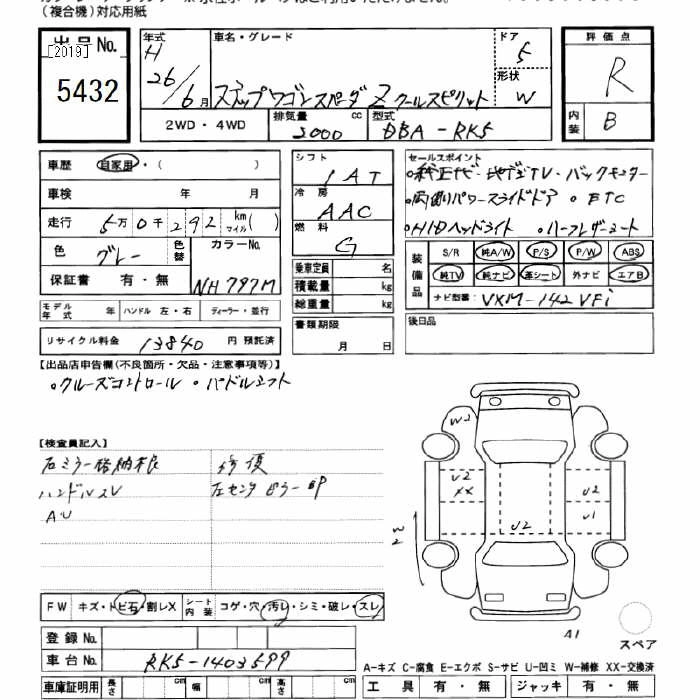 （複合機）対応用紙
出品No.
[2019]
5432
年式
H
26/6月
車名・グレード
ステップワゴンスパーダ Z クールスピリット
ドア
5
形状
W
評価点
R
内装
B
2WD・4WD
排気量
cc
2000
型式
DBA-RK5
車歴
自家用・（ ）
車検
年 月
走行
5万0千292km マイル( )
色
グレー
色替
カラーNo.
NH797M
保証書 有・無
シフト
IAT
冷房
AAC
燃料
G
乗車定員 名
積載量 kg
総重量 kg
書類期限
月 日
セールスポイント
・純正ナビ・地デジTV・バックモニター
・両側パワースライドドア ・ETC
・HIDヘッドライト ・ハーフレザーシート
装備品
S/R 純A/W P/S P/W ABS
純TV 純ナビ 革シート 外ナビ エアB
ナビ型番: VXM-142VFi
後日品
モデル年式 年 ハンドル 左・右 ディーラー・並行
リサイクル料金 13840 円 預託済
【出品店申告欄(不良箇所・欠品・注意事項等)】
・クルーズコントロール ・パドルシフト
【検査員記入】
右ミラー格納不良
修復
ハンドルスレ
左センターピラー凹
AU
W2
U2
XX
U2
U2
U1
W2
A1
スペア
FW キズ・トビ石・割レX シート内装 コゲ・穴・汚レ・シミ・破レ・スレ
登録No.
車台No.
RK5-1403599
車庫証明用 長さ cm 幅 cm 高さ cm
A-キズ C-腐食 E-エクボ S-サビ U-凹ミ W-補修 XX-交換済
工具 有・無 ジャッキ 有・無